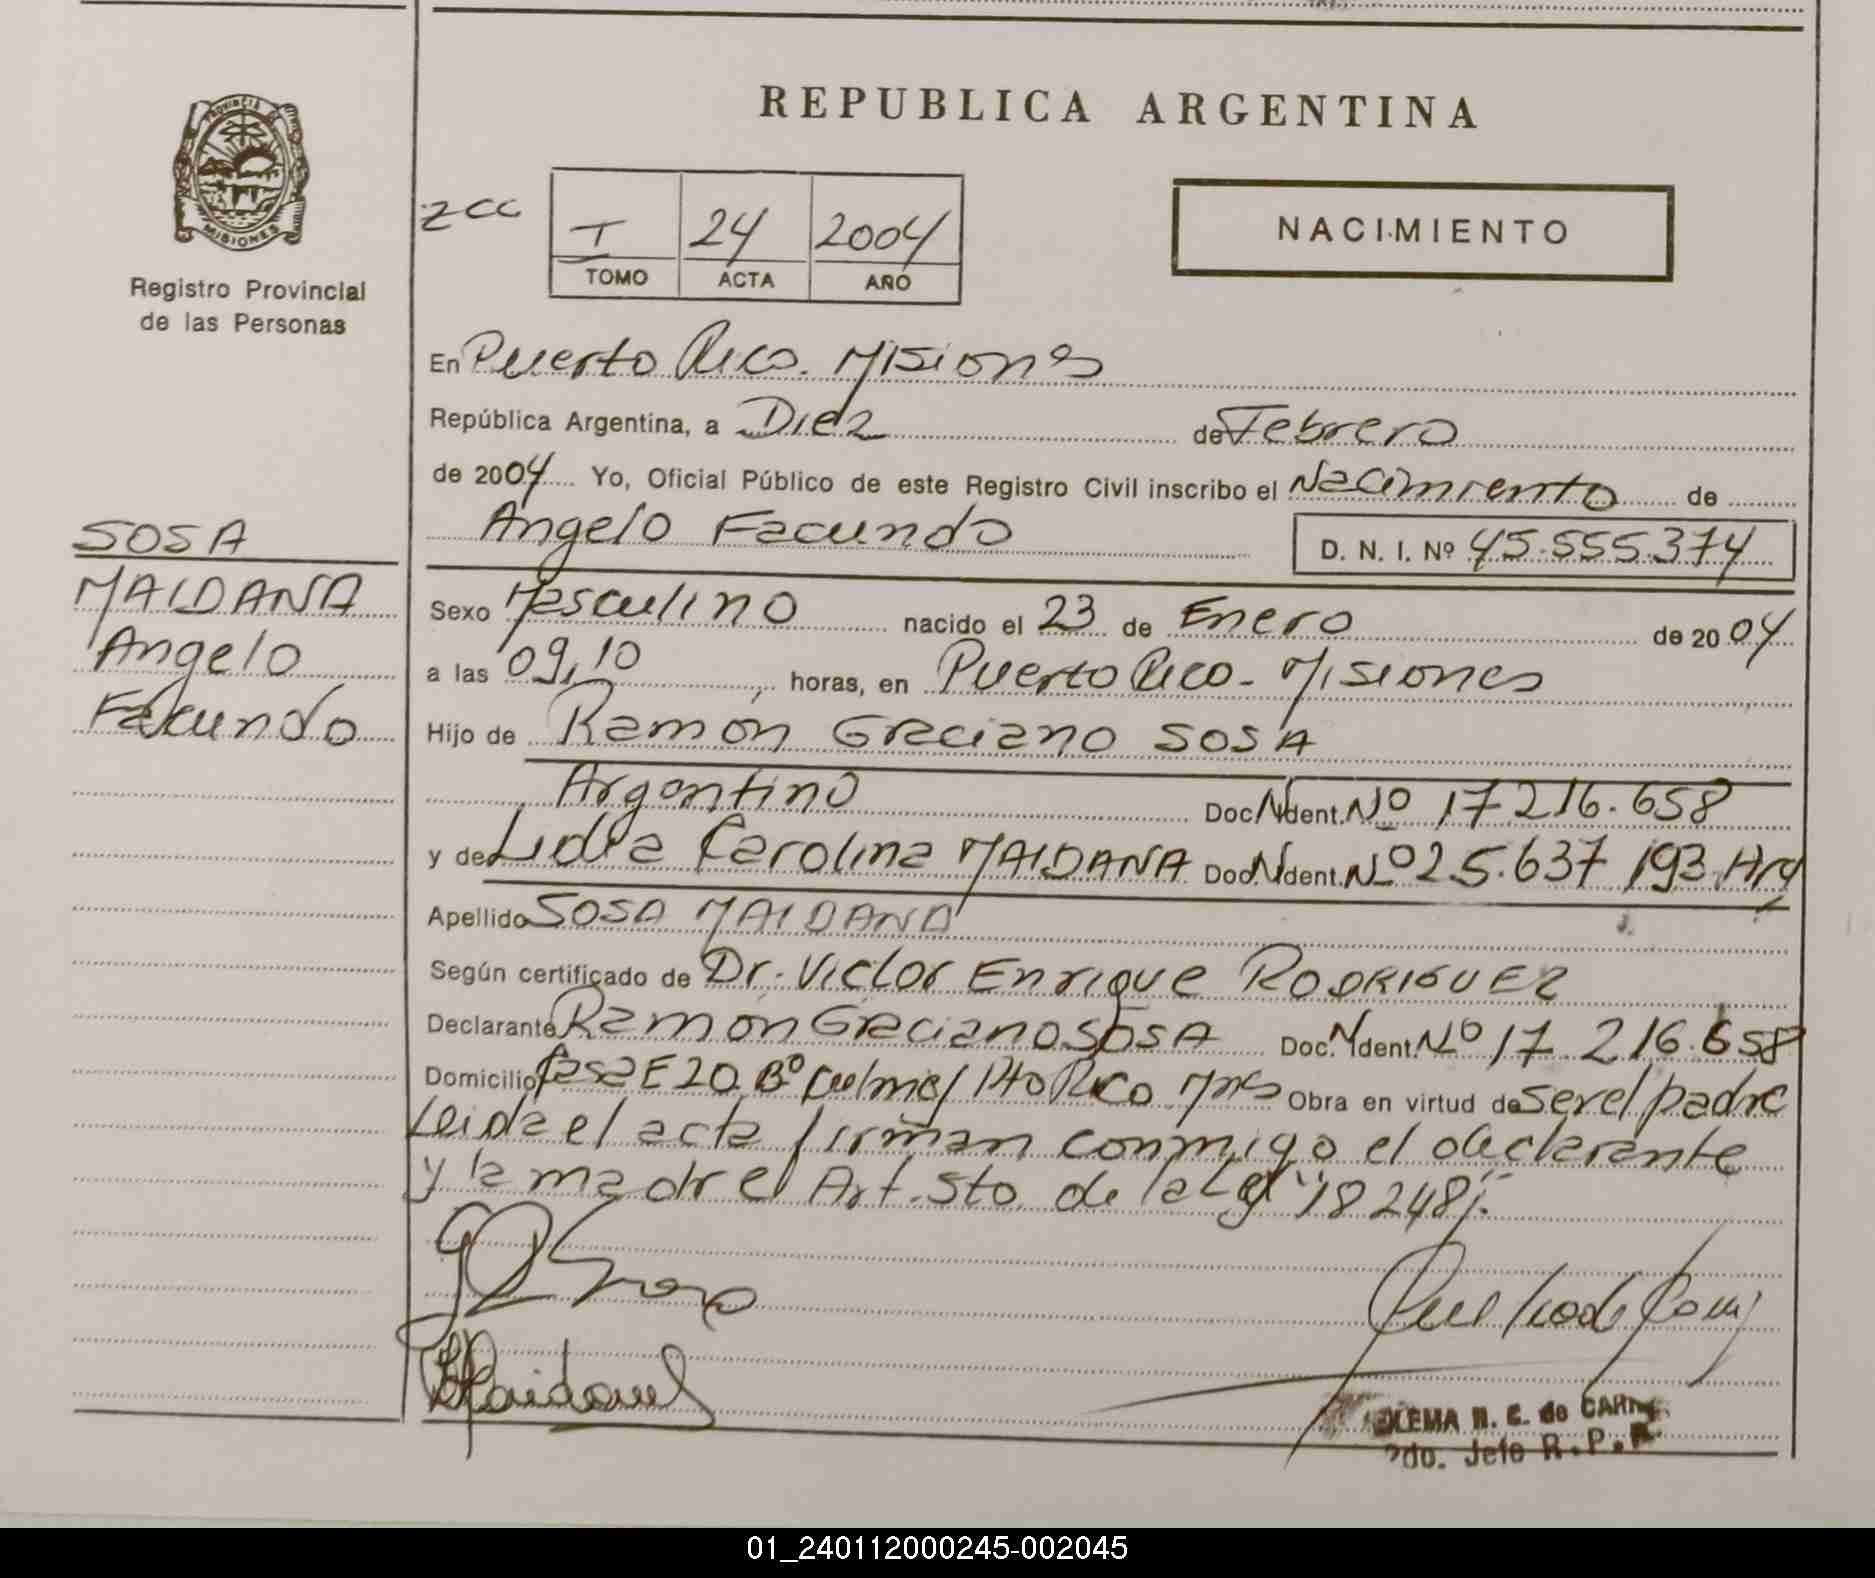 REPUBLICA ARGENTINA
PROVINCIA DE
MISIONES
Registro Provincial
de las Personas
zcc
I 24 2004
TOMO ACTA AÑO
NACIMIENTO
En Puerto Rico. Misiones
República Argentina, a Diez de Febrero
de 2004 Yo, Oficial Público de este Registro Civil inscribo el Nacimiento de
Angelo Facundo D. N. I. Nº 45.555.374
SOSA
MALDANA
Angelo
Facundo
Sexo Masculino nacido el 23 de Enero de 2004
a las 09,10 horas, en Puerto Rico - Misiones
Hijo de Ramón Graciano SOSA
Argentino Doc. N Ident. Nº 17.216.658
y de Lidia Carolina MALDANA Doc. N Ident. Nº 25.637.193. Arg
Apellido SOSA MALDANA
Según certificado de Dr. Victor Enrique RODRIGUEZ
Declarante Ramón Graciano SOSA Doc. N Ident. Nº 17.216.658
Domicilio Casa E 20 Bº Pto Rico Mnes Obra en virtud de ser el padre
Leida el acta firman conmigo el declarante
y la madre Art. 5to de la Ley 18248
R. C. de
2do. Jefe R.P.P.
01_240112000245-002045